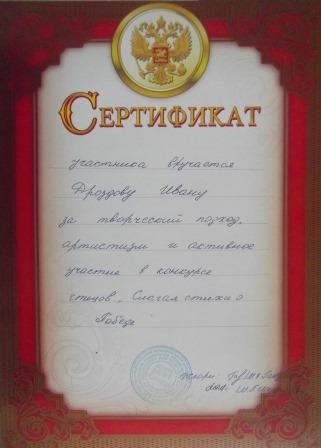 СЕРТИФИКАТ
участника вручается
Дроздову Ивану
за творческий подход,
артистизм и активное
участие в конкурсе
чтецов „Слагая стихи о
Победе
жюри: